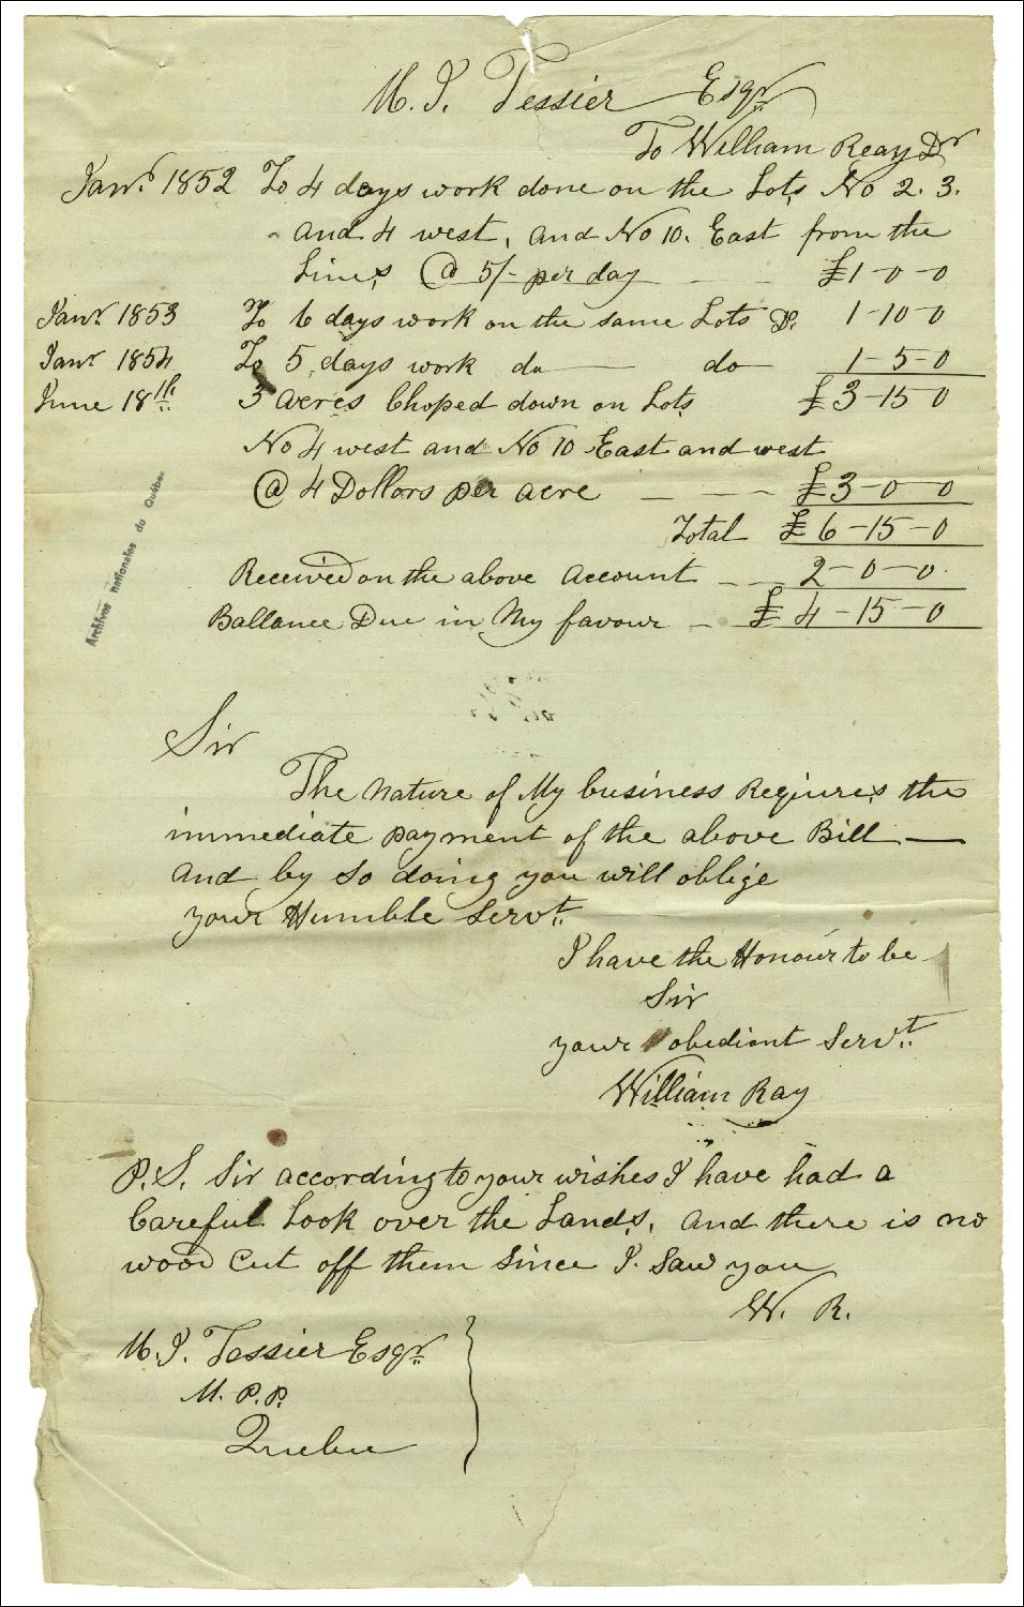 U. J. Tessier Esqr
To William Reay Dr
Janr. 1852 To 4 days work done on the Lots No 2. 3.
and 4 west, and No 10. East from the
Lines @ 5/- per day £1-0-0
Janr. 1853 To 6 days work on the same Lots Do. 1-10-0
Janr 1854 To 5 days work do do 1-5-0
June 18th 3 acres Choped down on Lots £3-15-0
No 4 west and No 10 East and west
@ 4 Dollors per acre £3-0-0
Total £6-15-0
Received on the above Account 2-0-0.
Ballance Due in My favour £4-15-0
Archives nationales du Québec
Sir
The Nature of My business Requires the
immediate payment of the above Bill
and by so doing you will oblige
your Humble Servt.
I have the Honour to be
Sir
your obediant Servt.
William Ray
P.S. Sir according to your wishes I have had a
Careful Look over the Lands, and there is no
wood Cut off them Since I. Saw you
W. R.
U. J. Tessier Esqr.
M. P. P.
Quebec